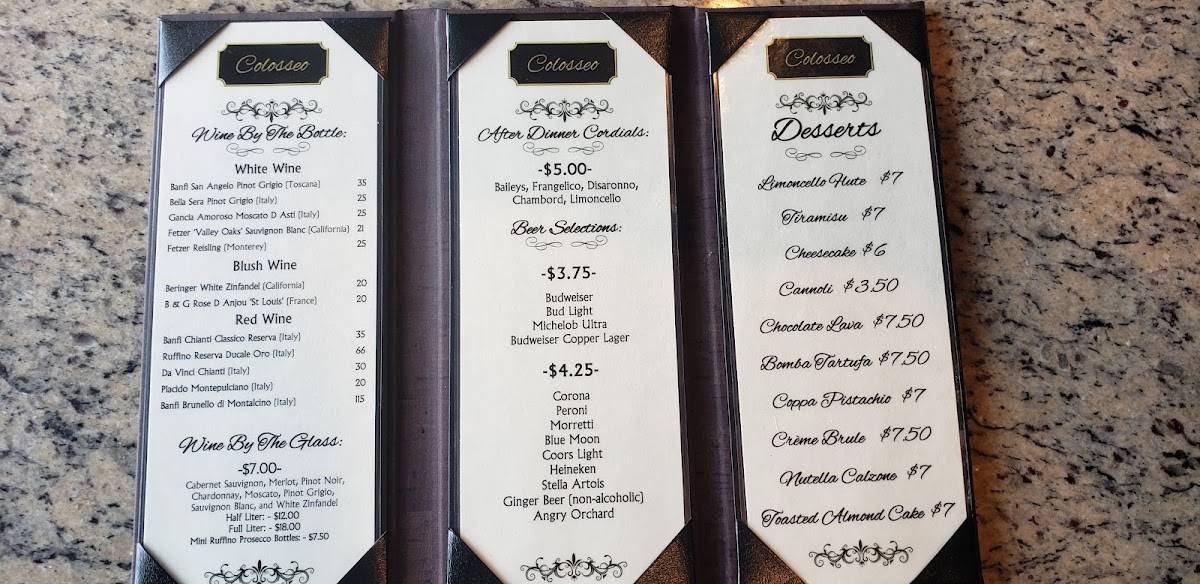 Colosseo
Wine By The Bottle:
White Wine
Banfi San Angelo Pinot Grigio (Toscana) 35
Bella Sera Pinot Grigio (Italy) 25
Gancia Amoroso Moscato D Asti (Italy) 25
Fetzer 'Valley Oaks' Sauvignon Blanc (California) 21
Fetzer Reisling (Monterey) 25
Blush Wine
Beringer White Zinfandel (California) 20
B & G Rose D Anjou 'St Louis' (France) 20
Red Wine
Banfi Chianti Classico Reserva (Italy) 35
Ruffino Reserva Ducale Oro (Italy) 66
Da Vinci Chianti (Italy) 30
Placido Montepulciano (Italy) 20
Banfi Brunello di Montalcino (Italy) 115
Wine By The Glass:
-$7.00-
Cabernet Sauvignon, Merlot, Pinot Noir,
Chardonnay, Moscato, Pinot Grigio,
Sauvignon Blanc, and White Zinfandel
Half Liter: - $12.00
Full Liter: - $18.00
Mini Ruffino Prosecco Bottles: - $7.50
Colosseo
After Dinner Cordials:
-$5.00-
Baileys, Frangelico, Disaronno,
Chambord, Limoncello
Beer Selections:
-$3.75-
Budweiser
Bud Light
Michelob Ultra
Budweiser Copper Lager
-$4.25-
Corona
Peroni
Morretti
Blue Moon
Coors Light
Heineken
Stella Artois
Ginger Beer (non-alcoholic)
Angry Orchard
Colosseo
Desserts
Limoncello Flute $7
Tiramisu $7
Cheesecake $6
Cannoli $3.50
Chocolate Lava $7.50
Bomba Tartufa $7.50
Coppa Pistachio $7
Crème Brule $7.50
Nutella Calzone $7
Toasted Almond Cake $7